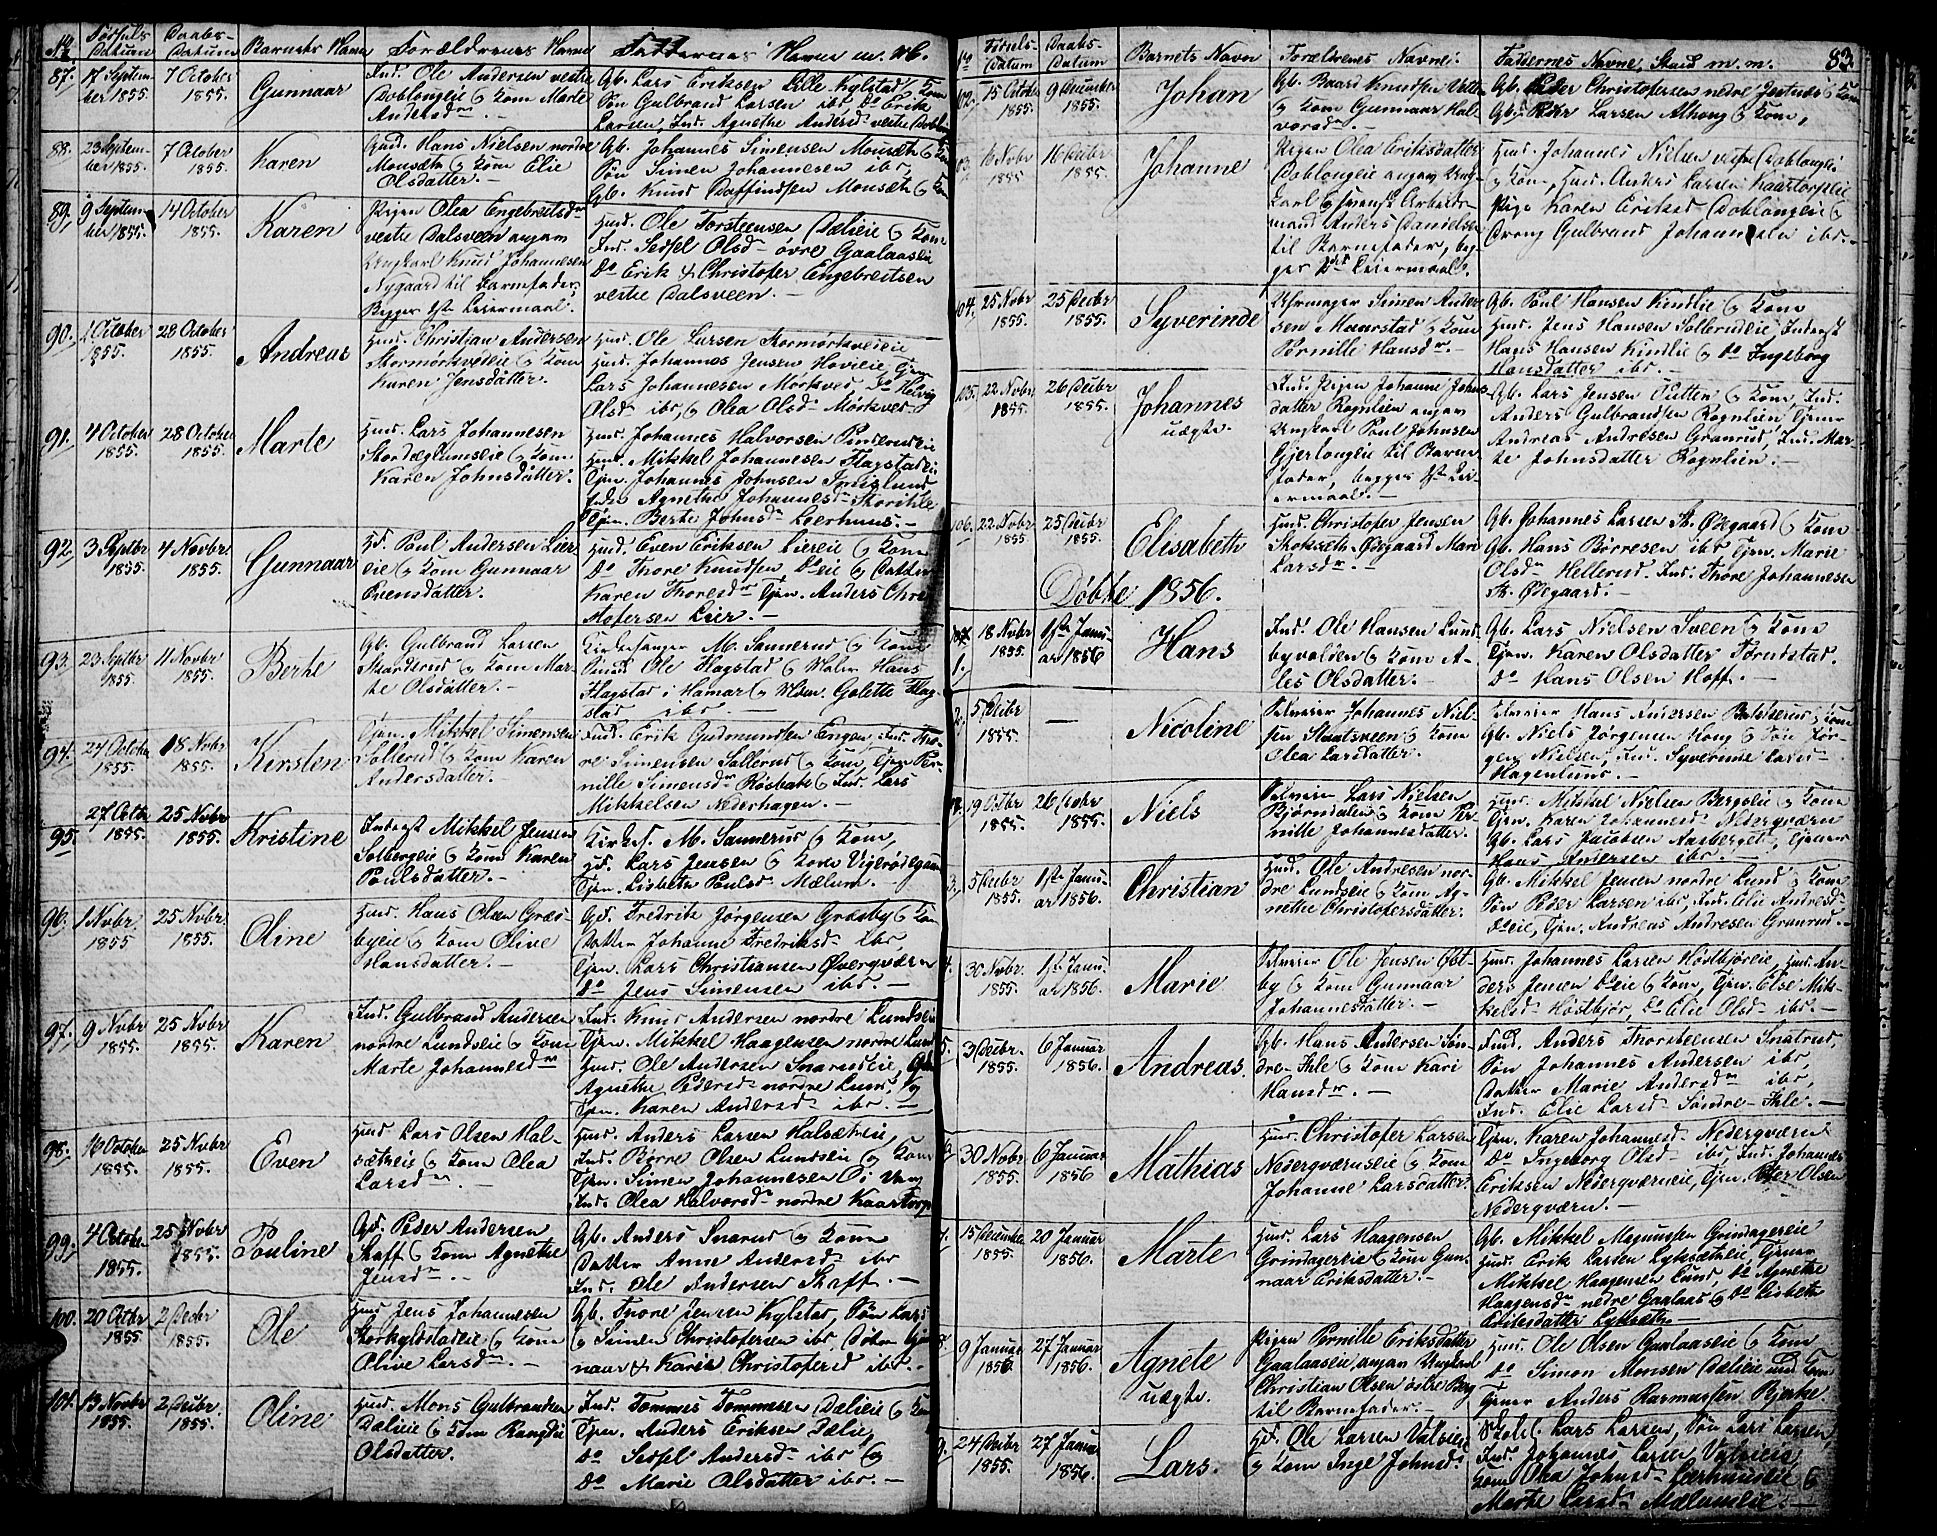 No. Fødsels Datum Daabs-Datum Barnets Navn Forældrenes Navne Faddernes Navne m. m.
87. 17 September 1855. 7 October 1855. Gunnaar
Ind. Ole Andersen vestre
Doblougeie & Kone Marte
Andersdr. –
Gb. Lars Eriksen Lille Kylstad & Kone
Søn Gulbrand Larsen ibr, Do Erik
Larsen, Ind. Agnethe Andersd vestre Doblou
88. 23 September 1855. 7 October 1855. Karen
Hans Nielsen nordre
Monsæth & Kone Elie
Olsdatter. –
Gb. Johannes Simensen Monsæth &
Søn Simen Johannesen ibr,
Gb. Knud Daffindsen Monsæth &
89. 9 September 1855. 14 October 1855. Karen
Pigen Olea Engebretsdr
vestre Dalsveen angav
Ungkarl Knud Johannesen
Nygaard til Barnefader,
Begges 1ste Leiermaal.
Huusd. Ole Torstensen Dælieie & Kone
Ind. Sidsel Olsd øvre Gaalaaseie
Do Erik & Christofer Engebretsen
vestre Dalsveen. –
90. 1 October 1855. 28 October 1855. Andreas
Huusd. Christian Andersen
Stormørkvedeie & Kone
Karen Jensdatter.
Huusd. Ole Larsen Stormørkvedeie
Huusd. Johannes Jensen Hovieie, Tjen
Lars Johannesen Mørkved, Do Helvig
Olsd ibr, & Olea Olsd Mørkved
91. 4 October 1855. 28 October Marte
Huusd. Lars Johannesen
Skordæglumseie & Kone
Karen Johnsdatter.
Huusd. Johannes Halvorsen Pinderudeie
Huusd. Mikkel Johannesen Flagstadeie
Tjen. Johannes Johnsen
Agnethe Johannesdr Storihle
Tjen. Berte Johnsdr Leerhuus. –
92. 3 Septbr 1855. 4 Novbr. 1855. Gunnaar
Hd. Poul Andersen Lier
eie & Kone Gunnaar
Evensdatter.
Huusd. Even Eriksen Liereie & Kone
Do Thore Knudsen Do eie & Datter
Karen Thoresdr Tjen. Anders Chri
stofersen Lier. –
93. 23 Septbr 1855. 11 Novbr 1855. Berthe
Gb. Gulbrand Larsen
Skanderud & Kone Mar-
te Olsdatter. –
Kirkesanger M. Sannerud & Kone
Ole Flagstad & Maler Hans
Flagstad i Hamar & Mdm. Golette Flag
stad ibr. –
94. 24 October 1855. 18 Novbr 1855. Kersten
Tjen. Mikkel Simensen
Sollerud & Kone Karen
Andersdatter. –
Ind. Erik Gudmundsen Engen, Ind. Tho-
re Simensen Sollerud & Kone, Tjen Per
nille Simensdr Rosbak & Ind. Lars
Mikkelsen Nederhagen. –
95. 27 Octbr 1855. 25 Novbr 1855. Kristine
Inderst Mikkel Jensen
Solbergeie & Kone Karen
Poulsdatter. –
Kirkes. M. Sannerud & Kone,
Hd. Lars Jensen & Kone Vigerødegaard
Tjen. Lisbeth Poulsd Mælum. –
96. 1 Novbr 1855 25 Novbr 1855. Oline
Huusd. Hans Olsen Græs-
byeie & Kone Olive
Hansdatter. –
Gd. Fredrik Jørgensen Græsby & Kone
Datter Johanne Fredriksd ibr
Tjen. Lars Christiansen Øvergværn
Do Jens Simensen ibr. –
97. 9 Novbr 1855. 25 Novbr 1855. Karen
Ind. Gulbrand Andersen
nordre Lundseie & Kone
Marte Johannesdr
Ind. Knud Andersen nordre Lundseie
Tjen. Mikkel Haagensen nordre Lund
Huusd. Ole Andersen Snarudeie,
Agnethe Pedersd nordre Lund, &
Tjen. Karen Andersd ibr. –
98. 16 October 1855. 25 Novbr 1855. Even
Huusd Lars Olsen Hal-
sætheie & Kone Olea
Larsdr. –
Huusd. Anders Larsen Halsætheie,
Ind. Børre Olsen Lundseie & Kone
Tjen. Simen Johannesen Oi Vang
Ind. Olea Halvorsdr nordre Kaartorp
99. 4 October 1855. 25 Novbr 1855. Pauline
Gd. Peder Andersen
Skaff & Kone Agnethe
Jensdr. –
Gb. Anders Snarud & Kone
Datter Anne Andersd ibr
Ind. Ole Andersen Skaff. –
100. 20 Octbr 1855 2 Decbr 1855. Ole
Huusd Jens Johannesen
Storkylstadeie & Kone
Olive Larsdr. –
Gb. Thore Jensen Kylstad, Søn Lars
& Simen Christofersen ibr, Gun
naar & Karen Christofersd ibr. –
101. 13 Novbr 1855. 2 Decbr 1855. Oline
Huusd. Mons Gulbrandsen
Dælieie & Kone Rangdi
Olsdatter.
Ind. Tommes Tommesen Dælieie & Kone
Tjen. Anders Eriksen Dælie,
Do Sidsel Andersd ibr &
Do Marie Olsdatter ibr. –
No Fødsels-Datum Daabs-Datum Barnets Navn Forældrenes Navne. Faddernes Navne, Stand m. m. 83.
102. 15 October 1855. 9 December 1855. Johan
Gb. Baard Knudsen
& Kone Gunnaar Hal-
vorsdr. –
Gb. Peder Christofersen nedre Jestnæs & Kone
Gb. Peder Larsen Alhoug & Kone,
103. 16 Novbr 1855 16 Decbr 1855. Johanne
Pigen Olea Eriksdatter
Doblougeie angav Ung-
karl & svensk Arbeids-
mand Anders Danielsen
til Barnefader, beg-
ges Leiermaal.
Huusd. Johannes Nielsen vestre Doblougeie
& Kone, Huusd. Anders Larsen Kaartorpeie
Pige Karen Eriksd Doblougeie &
Dreng Gulbrand Johannesen ibr. –
104. 25 Novbr 1855. 25 Decbr 1855. Syverinde
Uhrmager Simen Ander-
sen Maarstad & Kone
Pernille Hansdr. –
Gb. Poul Hansen Kindlie & Kone
Huusd. Jens Hansen Solbrudeie, Inderst
Hans Hansen Kindlie & Do Ingeborg
Hansdatter ibr. –
105. 22 Novbr 1855. 26 Decbr 1855. Johannes uægte.
Ind. Pigen Johanne Johns-
datter Rognlien angav
Ungkarl Poul Johnsen
Gjerlougeie til Barne
fader, begges 1ste Lei
ermaal. –
Gb. Lars Jensen Sutten & Kone Ind.
Anders Gulbrandsen Rognlien, Tjener
Andreas Andresen Granrud, Ind. Mar
te Johnsdatter Rognlien. –
106. 22 Novbr 1855 25 Decbr 1855. Elisabeth
Huusd. Christofer Jensen
Stoksæth Ødegaard Mari
Larsdr. –
Gb. Johannes Larsen St. Ødegaard & Kone
Gb. Hans Børresen ibr Tjen. Marie
Olsdr Hellerud. Ind. Thore Johannesen
St. Ødegaard. –
Døbte 1856.
107. 1. 18 Novbr 1855. 1ste Janu ar 1856 Hans
Ind. Ole Hansen Lund-
byvolden & Kone A-
les Olsdatter. –
Gb. Lars Nielsen Sveen & Kone
Tjen. Karen Olsdatter Torudstad.
Do Hans Olsen Hoff. –
2. 5 Decbr 1855. — Nicoline
Selveier Johannes Niel-
sen Staatsveen & Kone
Olea Larsdatter.
Selveier Hans Andersen & Kone
Gb. Niels Jørgensen Houg & Søn Jør-
gen Nielsen, Ind. Syverinne Lars
Hagenlund. –
19 Octbr 1855. 26 Decbr 1855. Niels
Selveier Lars Nielsen
Bjørndalen & Kone Per
nille Johannesdatter.
Huusd. Mikkel Nielsen Bergseie & Kone
Tjen. Karen Johannesd Nedergværn
Gb. Lars Jacobsen Aasberget, Tjener
Hans Andersen ibr. –
3. 5 Decbr 1855. 1ste Janu ar 1856. Christian
Huusd. Ole Andresen nor-
dre Lundseie & Kone Ag-
nethe Christofersdatter.
Gb. Mikkel Jensen nordre Lund & Kone
Søn Peder Larsen ibr, Ind. Elie Andresd
Do eie, Tjen. Andreas Andresen Granrud. –
4. 30 Novbr. 1855. 1ste Janu ar 1856. Marie
Selveier Ole Jensen Ost-
by & Kone Gunnaar
Johannesdatter. –
Huusd. Johannes Larsen Høstbjøreie, Huusd. An-
ders Jensen Do eie & Kone, Tjen. Else Mik-
kelsd Høstbjør, Do Elie Olsd ibr. –
5. 3 Decbr. 1855. 6 Januar 1856. Andreas.
Gb. Hans Andersen Søn-
dre-Ihle & Kone Kari
Hansdr. –
Ind. Anders Thorsteensen Snarud,
Søn Johannes Andersen ibr,
Datter Marie Andersdr ibr,
Ind. Elie Larsd Søndre-Ihle. –
6. 30 Novbr 1855. 6 Januar 1856 Mathias
Huusd. Christofer Larsen
Nedergværnseie & Kone
Johanne Larsdatter.
Tjen. Karen Johannesd Nedergværn
Do Ingeborg Olsd ibr Ind. Johannes
Eriksen Nedergværneie, Tjen. Peder Olsen
Nedergværn. –
7. 15 December 1855. 20 Januar 1856. Marte
Huusd. Lars Haagensen
Grindagereie & Kone Gun-
naar Eriksdatter. –
Gb. Mikkel Magnussen Grindagereie
Huusd. Erik Larsen Lyksætheie Tjener
Mikkel Haagensen Lund, Do Agnethe
Haagensdr nedre Gaalaas & Do Lisbeth
Eriksdatter Lyksæth. –
8. 9 Januar 1856. 27 Januar 1856. Agnete uægte.
Pigen Pernille Eriksdatter
Gaalaaseie, angav Ungkarl
Christian Olsen østre Berg
til Barnefader. –
Huusd. Ole Olsen Gaalaaseie & Kone
Do Simon Monsen Dælieie med Kone
Tjener Anders Rasmussen Bjerke.
9. 24 Decbr 1855. 27 Januar 1856. Lars.
Hd. Ole Larsen Valseie
& Kone Inge Johnsdr
Skolel. Lars Larsen, Søn Lars Larsen,
Ind. Johannes Larsen Valseie
Kone Olea Johnsd Leerhuuseie &
Marte Larsdr Mælumeie. –